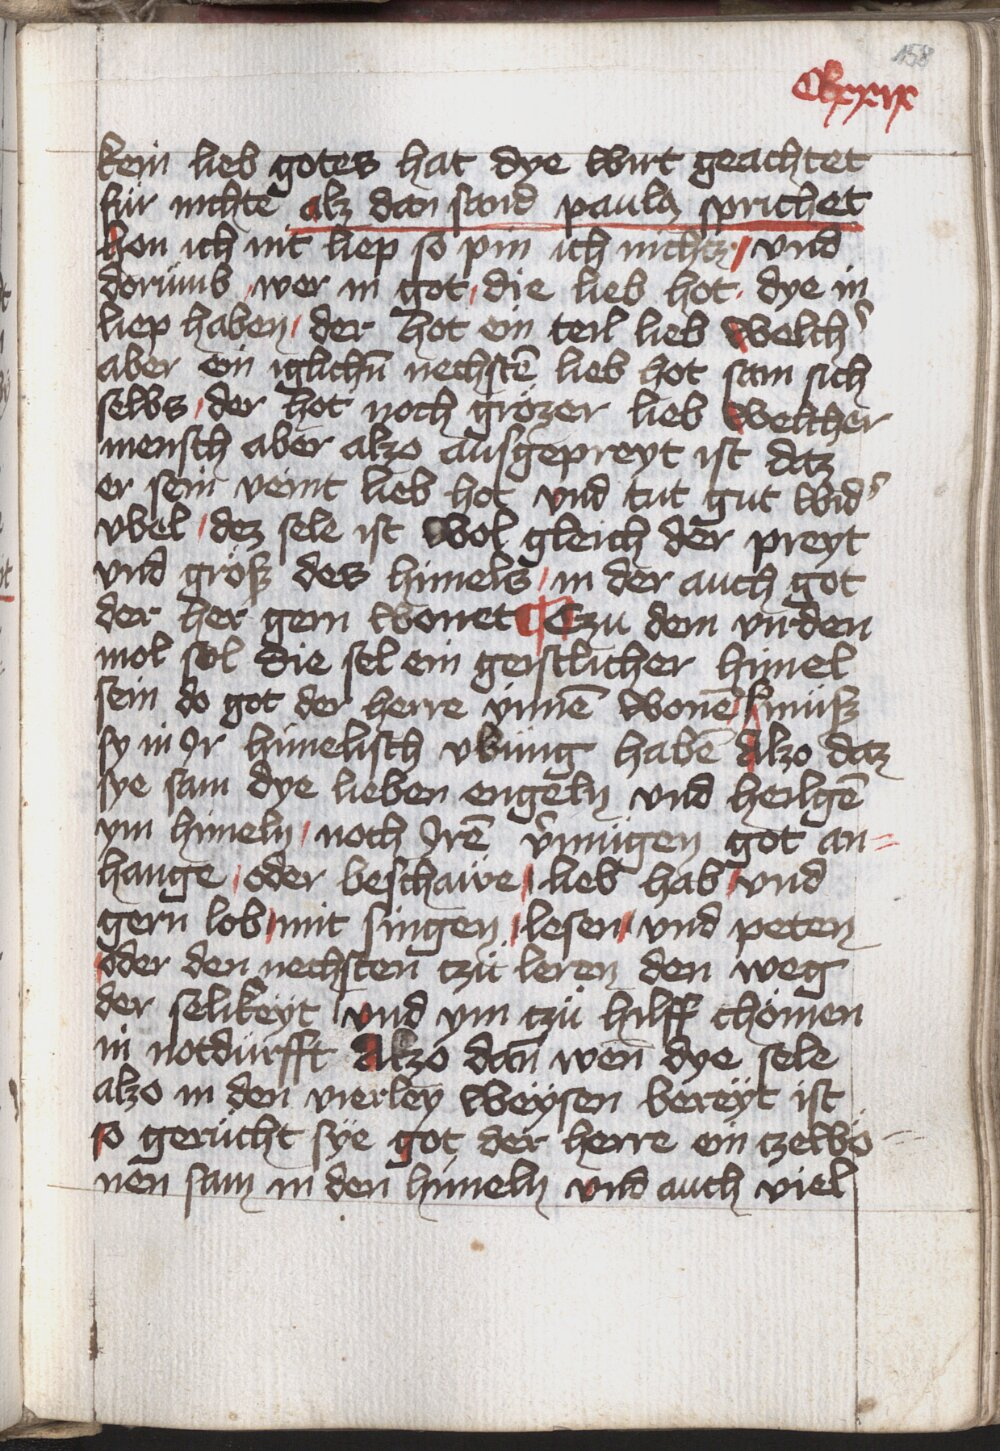 158
Clxxxix
kein lieb gotes hat dye wirt geachtet
für nichtē alz dan sand paulꝯ sprichet
hon ich nit liep so pin ich nichtz / vnd
dorümb / wer in got / die lieb hot · dye in
liep haben / der hot ein teil lieb welch᷑
aber ein iglichñ nechstē lieb hot sam sich
selbs / der hot noch grözer lieb welcher
mensch aber alzo ausgepreyt ist datz
er sein veint lieb hot vnd tut gut wid᷑
vbel / dez sele ist wol gleich der preyt
vnd größ des himels / in der auch got
der her gern wonet ¶ Czu dem virden
mol sol die sel ein geistlicher himel
sein do got der herre ynnē wonē / so müß
sy in Jr himelisch vbung habē Alzo datz
sye sam dye lieben engeln vnd heilgē
ym himeln / noch Jrē v᷑mügen got an=
hange / oder beschawe / lieb hab / vnd
gern lob / mit singen / lesen / vnd peten
oder den nechsten tzü leren den weg
der selikeyt vnd ym tzü hilff chömen
in notdürfft Alzo dan̄ wen̄ dye sele
alzo in den vierley weÿsen bereÿt ist
so gerücht sÿe got der herre ein tzewo=
nen sam in den himeln vnd auch viel